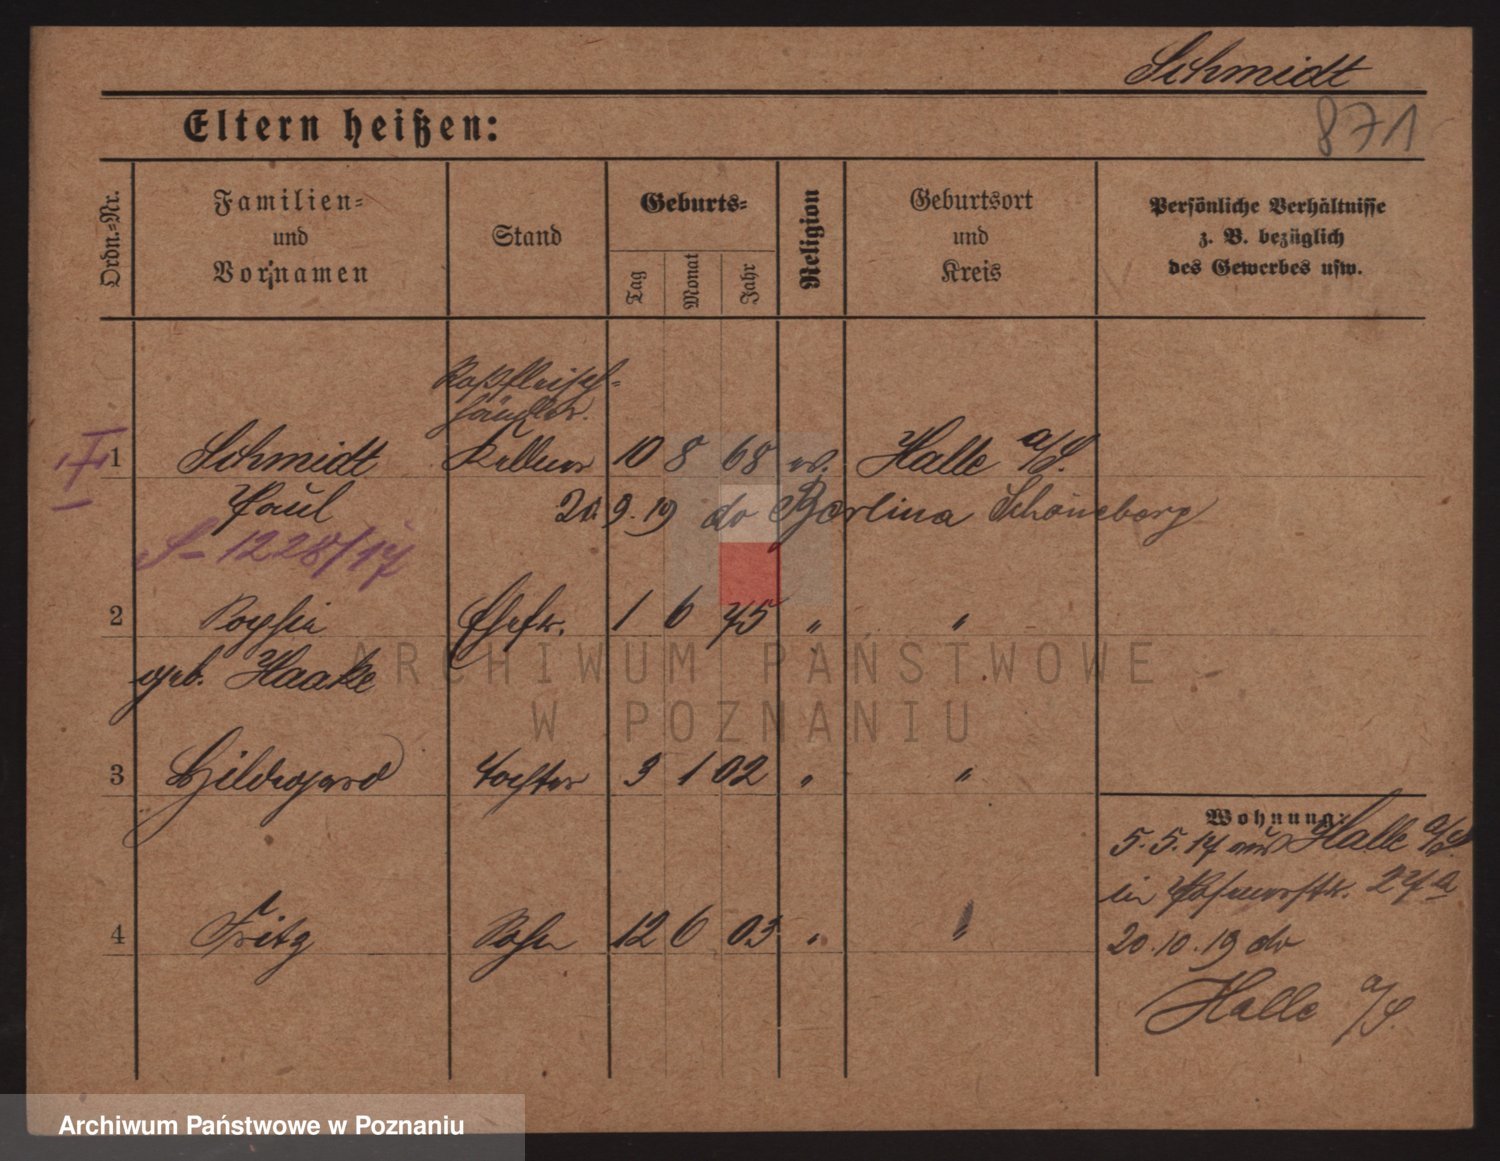 Schmidt
871
Eltern heißen:
Ordn.-Nr.
Familien-
und
Vornamen
Stand
Geburts-
Tag
Monat
Jahr
Religion
Geburtsort
und
Kreis
Persönliche Verhältnisse
z. B. bezüglich
des Gewerbes usw.
Roßfleisch-
händler.
1 Schmidt Kellner 10 8 68 ev. Halle a/S.
Paul 20.9.19 do Berlin Schöneberg
S-1228/17
2 Sophie Ehefr. 1 6 75 " "
geb. Haake
3 Hildegard Tochter 3 1 02 " "
Wohnung:
5.5.17 aus Halle a/S.
in Posenerstr. 27a
4 Fritz Sohn 12 6 03 " "
20.10.19 do
Halle a/S.
ARCHIWUM PAŃSTWOWE
W POZNANIU
Archiwum Państwowe w Poznaniu